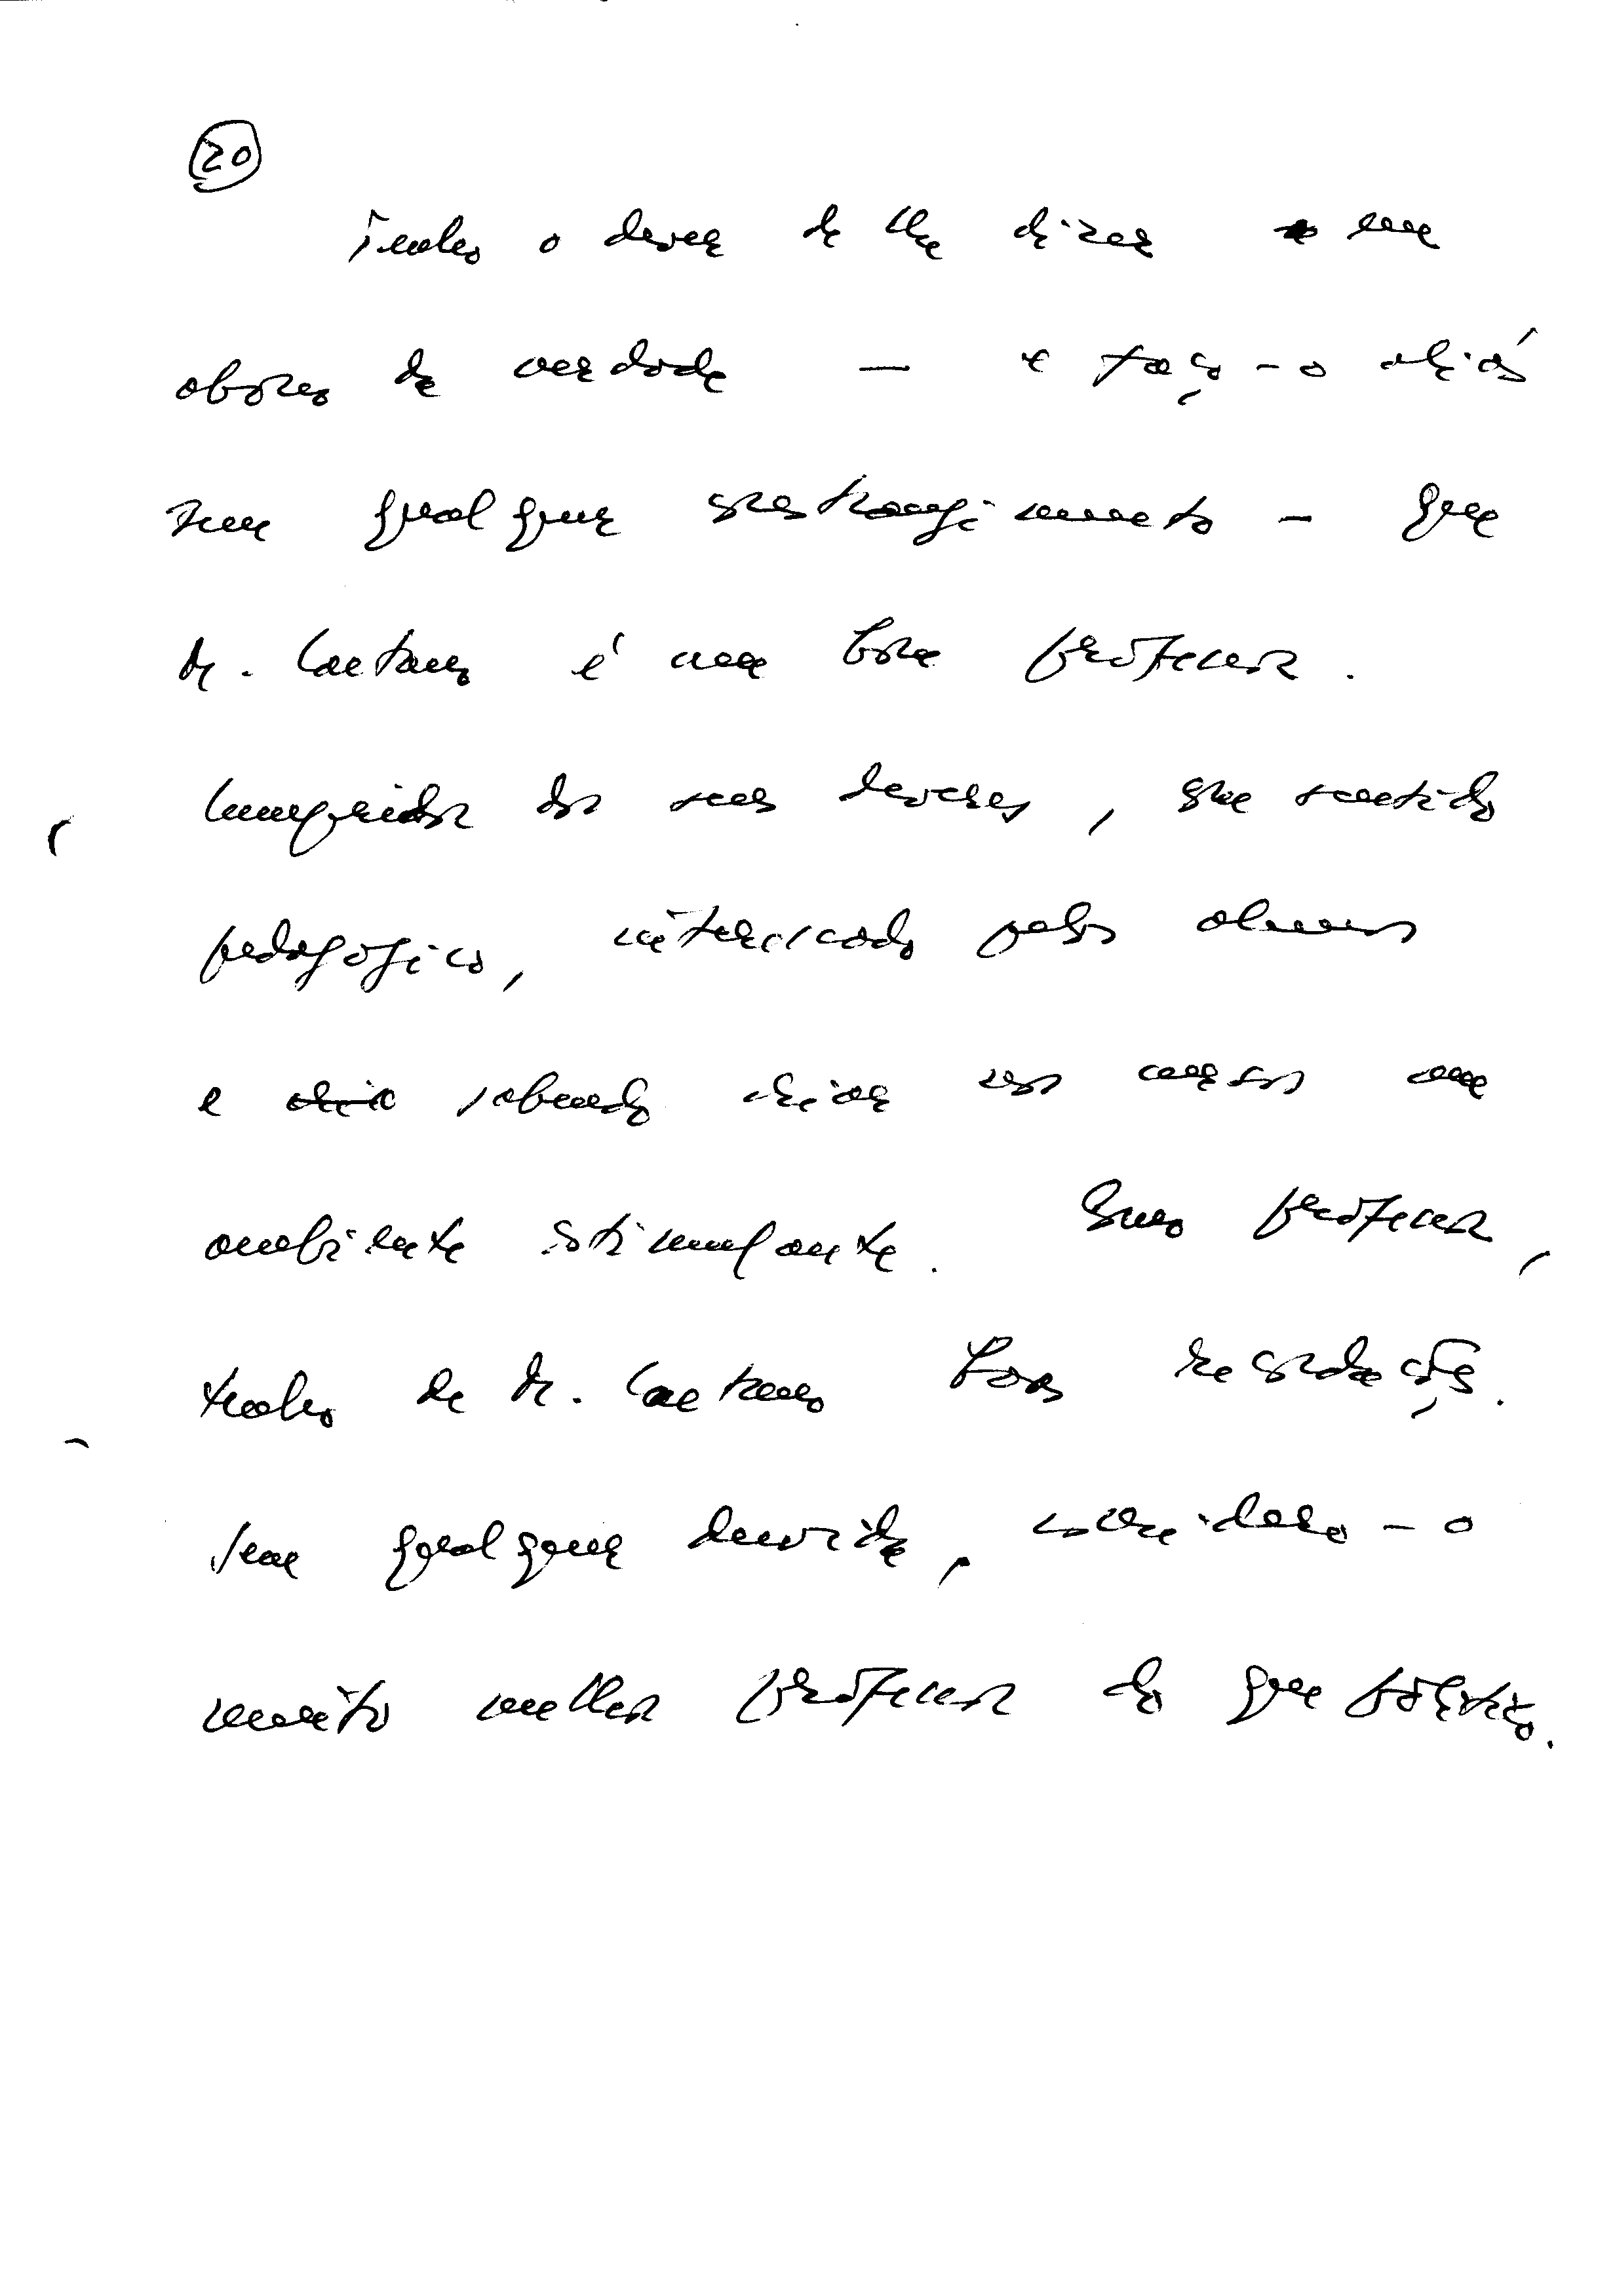 20
Tenho o dever de lhe dizer em
abono da verdade — e faço-o aliás
sem qualquer constrangimento — que
Dr. Caetano é um bom professor.
Cumpridor dos seus deveres, com sentido
pedagógico, interessado pelos alunos
e sabendo criar nos cursos um
ambiente estimulante. Como professor,
tenho de Dr. Caetano boas recordações.
Sem qualquer dúvida, considero-o
muito melhor professor do que político.